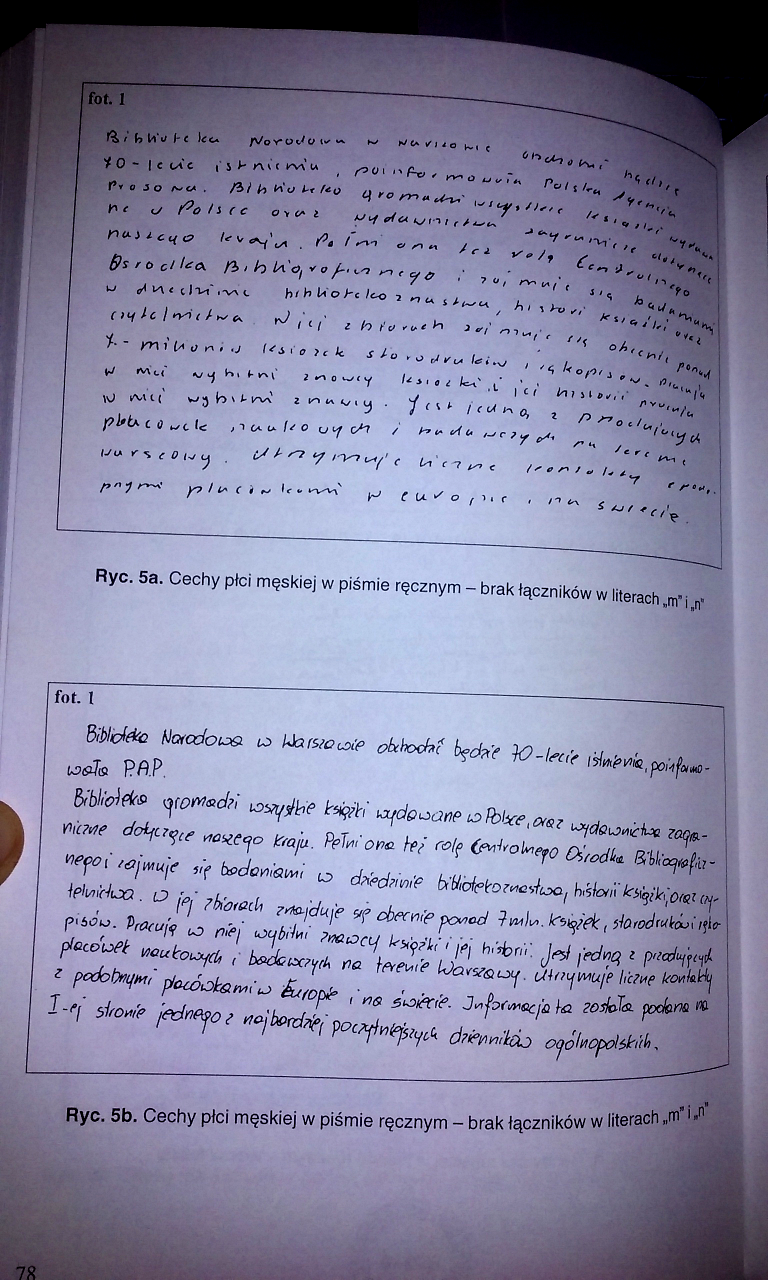 fot. 1
Biblioteka Narodowa w
70-lecie istnienia, poinformowała Polska Agencja
Prasowa. Biblioteka gromadzi wszystkie książki
ne w Polsce oraz wydawnictwa zagraniczne dotyczące
naszego kraju. Pełni ona też rolę Centralnego
Ośrodka Bibliograficznego i zajmuje się badaniami
w dziedzinie bibliotekoznastwa, histori książki oraz
czytelnictwa. W jej zbiorach znajduje się obecnie ponad
7 - książek starodruków i rękopisów. Pracują
w niej wybitni znawcy książki i jej historii
w niej wybitni znawcy. Jest jedną z przodujących
placówek naukowych i badawczych na terenie
Utrzymuje liczne kontakty
placówkami w europie i na świecie.
Ryc. 5a. Cechy płci męskiej w piśmie ręcznym – brak łączników w literach „m" i „n"
fot. 1
Biblioteka Narodowa w Warszawie obchodzić będzie 70-lecie istnienia, poinformo-
wała P.A.P.
Biblioteka gromadzi wszystkie książki wydawane w Polsce, oraz wydawnictwa zagra-
niczne dotyczące naszego kraju. Pełni ona też rolę Centralnego Ośrodka Bibliograficz-
nego i zajmuje się badaniami w dziedzinie bibliotekoznastwa, historii książki, oraz czy-
telnictwa. W jej zbiorach znajduje się obecnie ponad 7 mln. książek, starodruków i ręko-
pisów. Pracują w niej wybitni znawcy książki i jej historii. Jest jedną z przodujących
placówek naukowych i badawczych na terenie Warszawy. Utrzymuje liczne kontakty
z podobnymi placówkami w Europie i na świecie. Informacja ta została podana na
I-ej stronie jednego z najbardziej poczytniejszych dzienników ogólnopolskich.
Ryc. 5b. Cechy płci męskiej w piśmie ręcznym – brak łączników w literach „m" i „n"
78